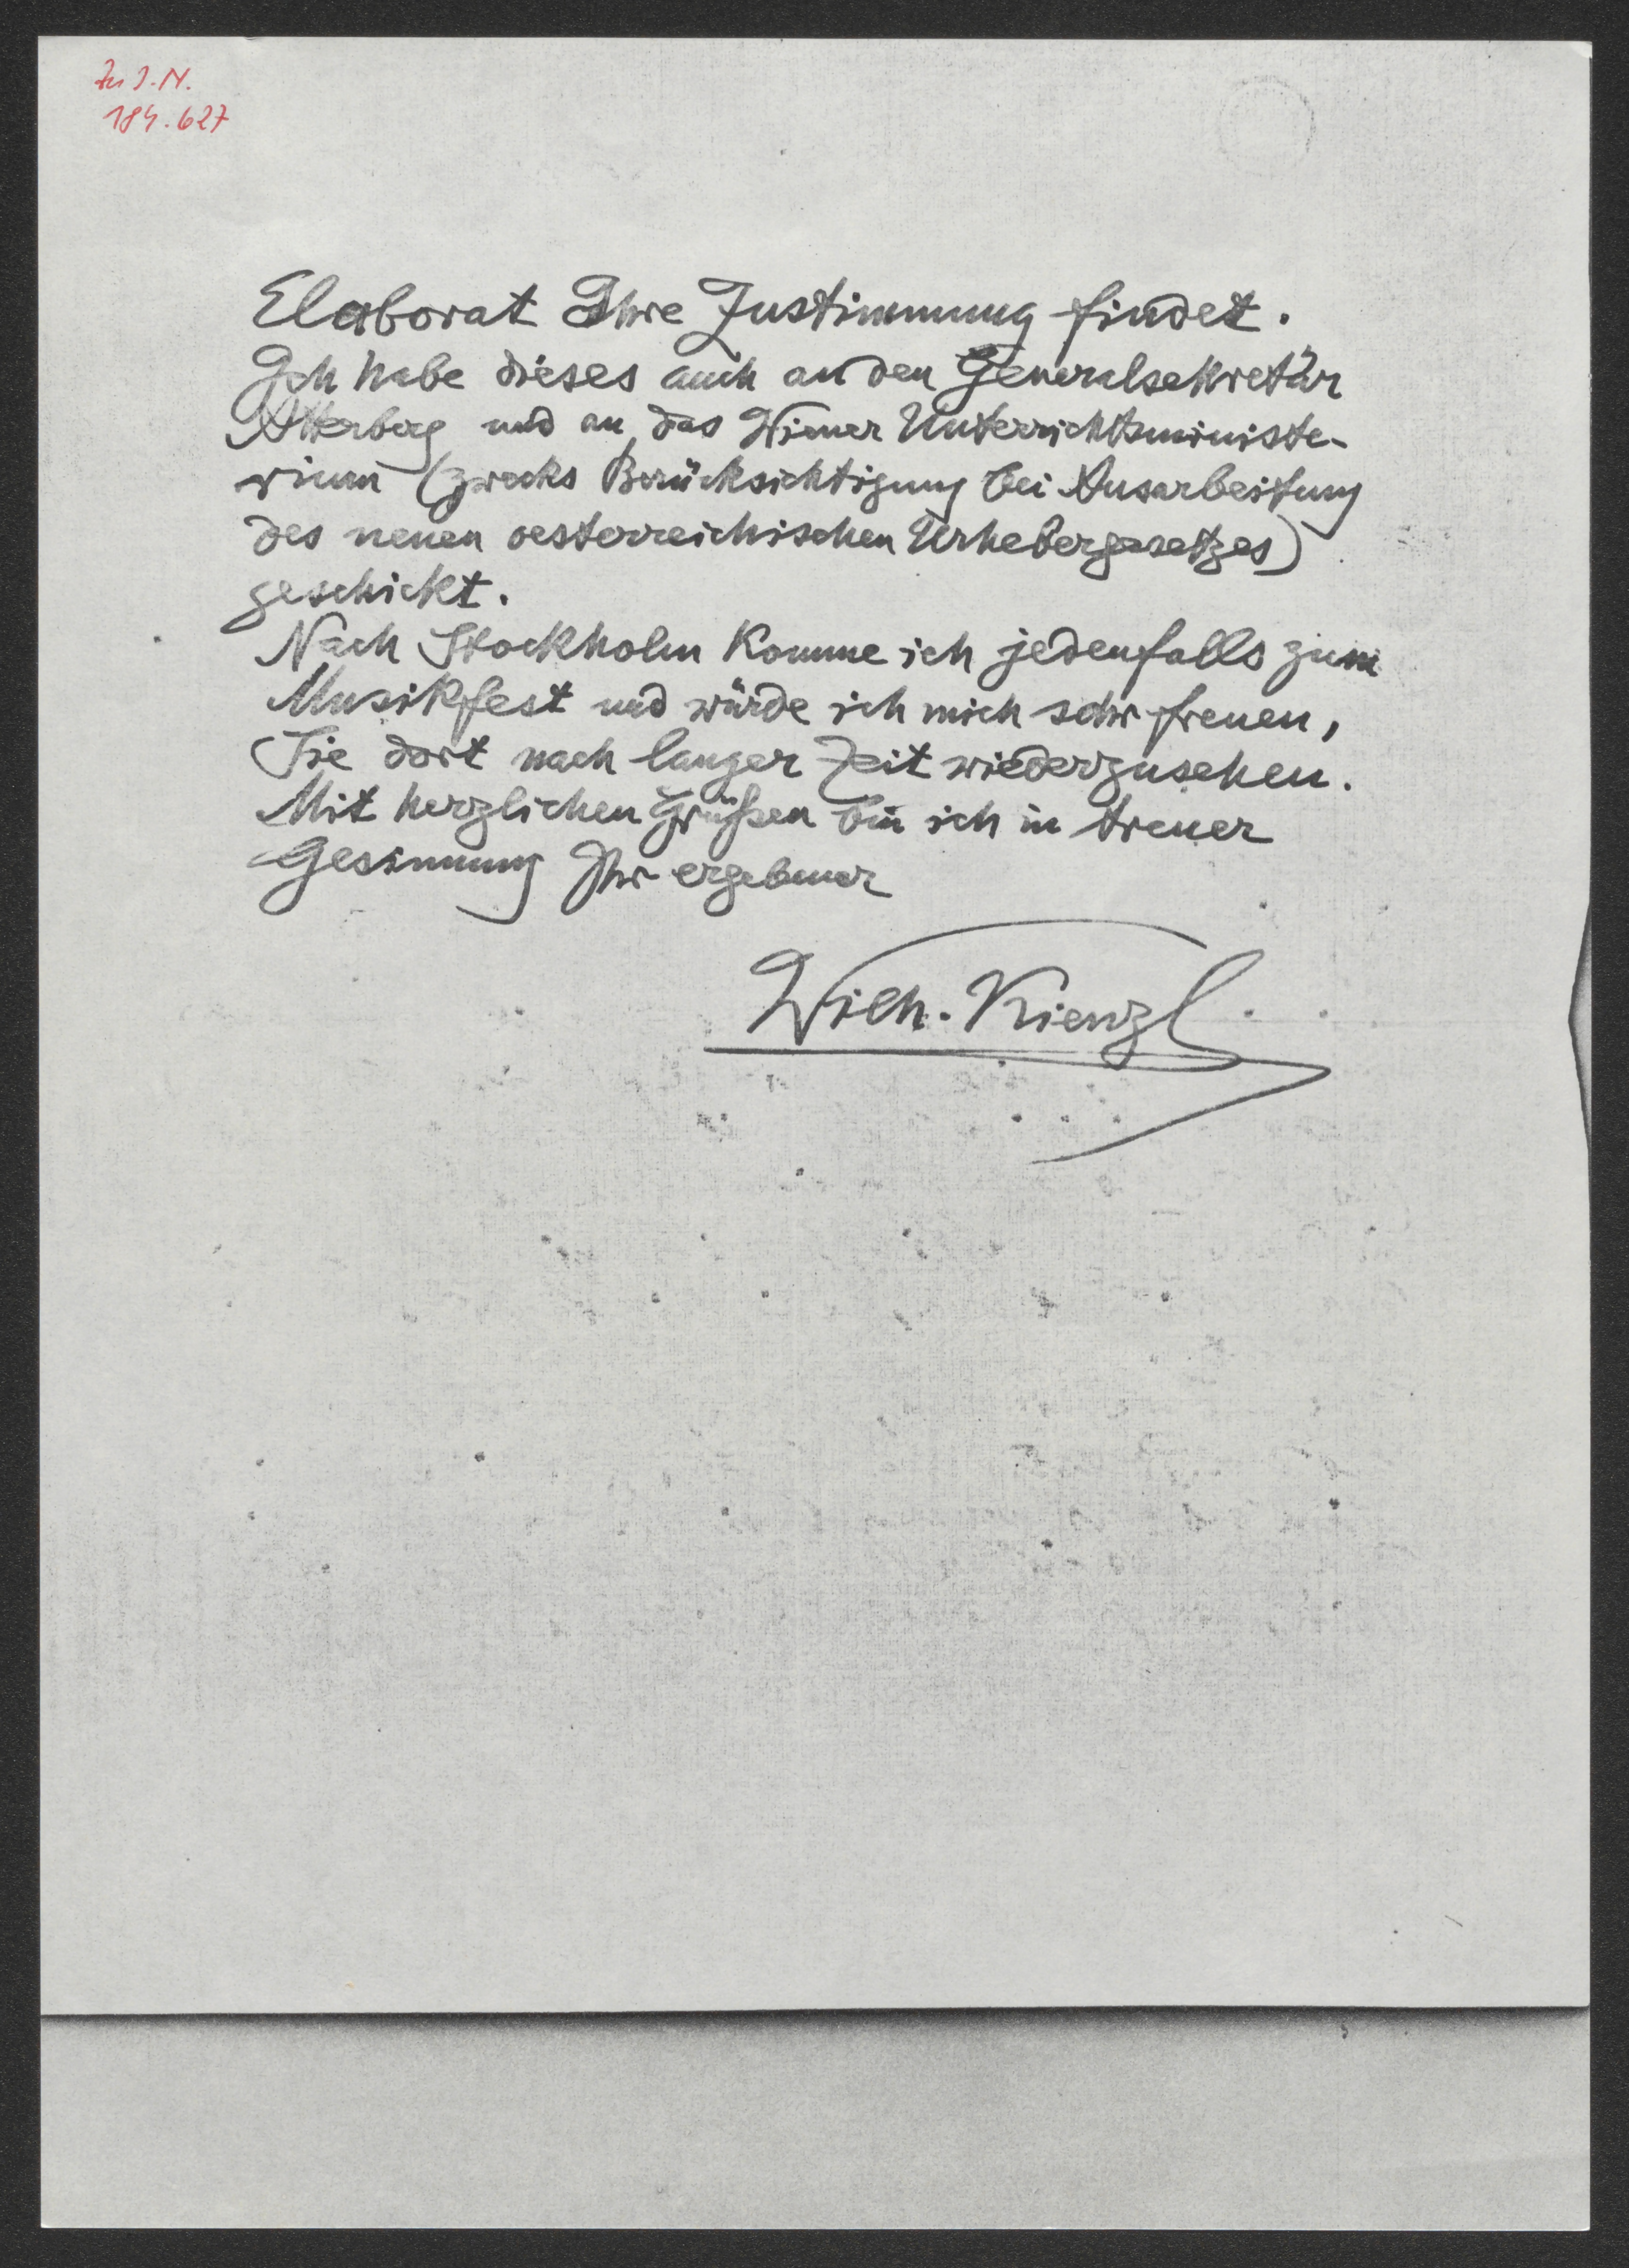 Zu I.N.
184.627
Elaborat Ihre Zustimmung findet.
Ich habe dieses auch an den Generalsekretär
Atterberg und an das Wiener Unterrichtsministe-
rium (zwecks Berücksichtigung bei Ausarbeitung
des neuen oesterreichischen Urhebergesetzes)
geschickt.
Nach Stockholm komme ich jedenfalls zum
Musikfest und würde ich mich sehr freuen,
Sie dort nach langer Zeit wiederzusehen.
Mit herzlichen Grüßen bin ich in treuer
Gesinnung Ihr ergebener
Wilh. Kienzl